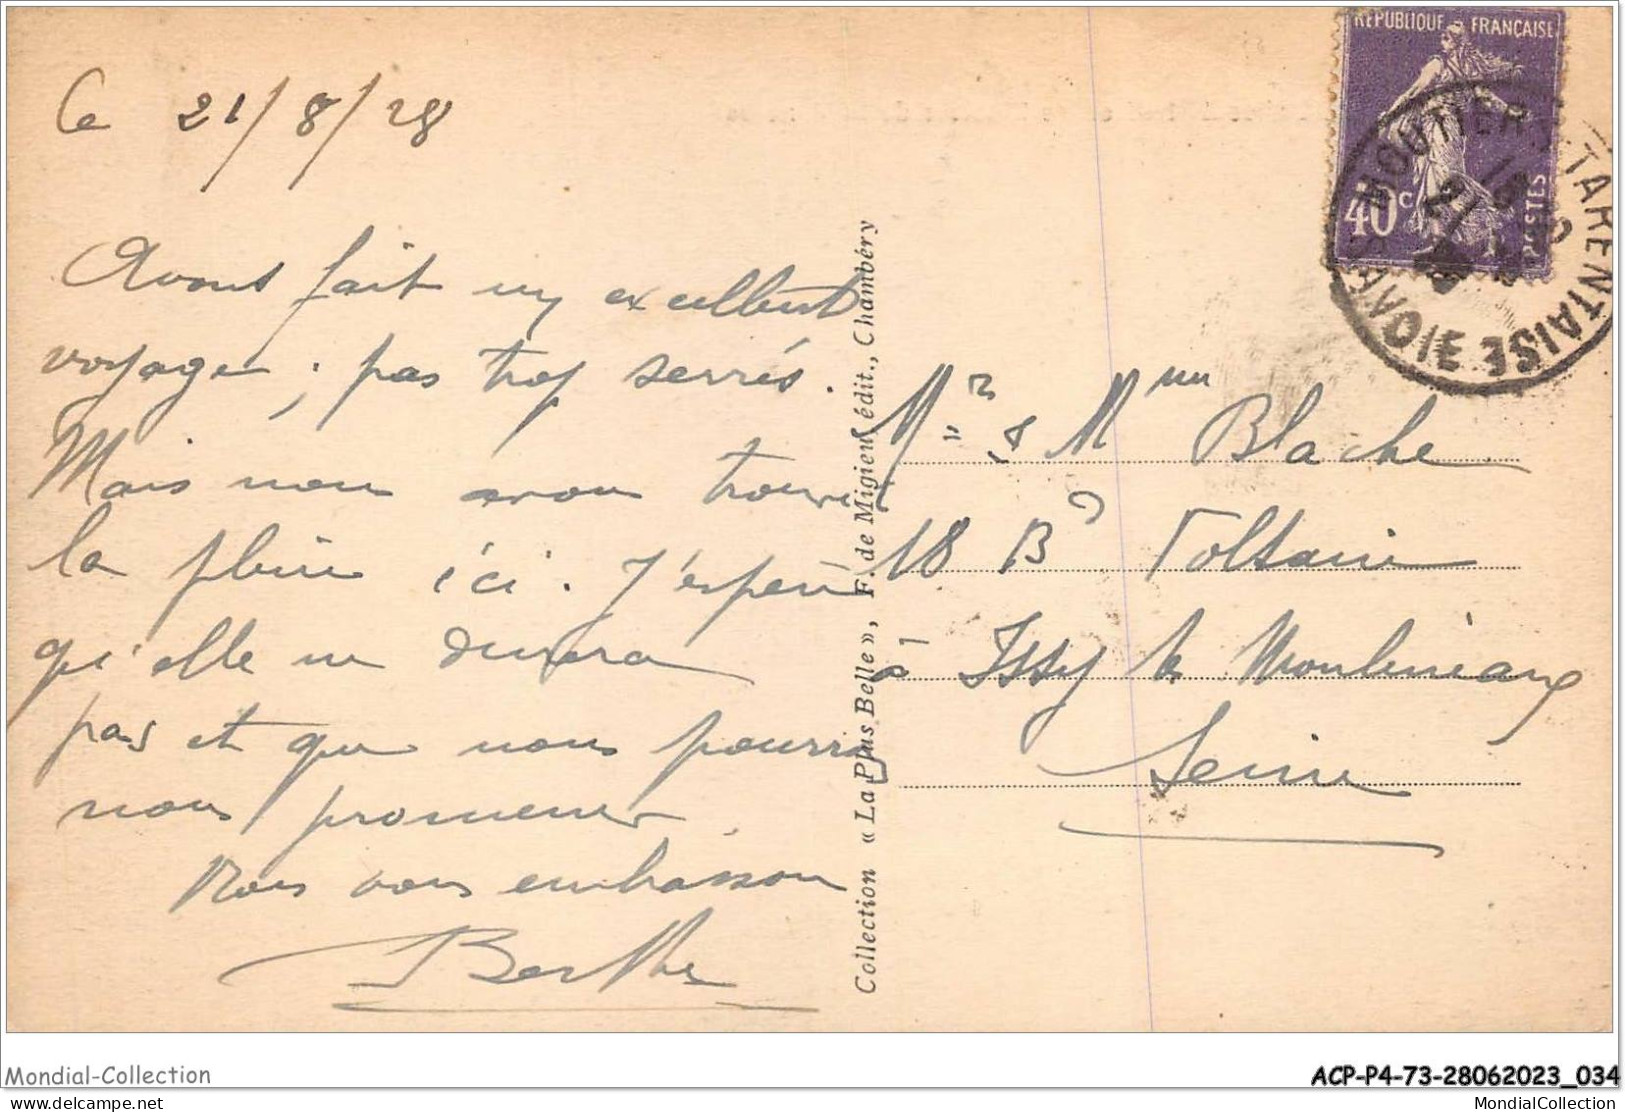 Ce 21/8/28
Avons fait un excellent
voyage ; pas trop serrés.
Mais nous avons trouvé
la pluie ici. J'espère
qu'elle ne durera
pas et que nous pourrons
nous promener.
Nous vous embrassons
Berthe
Collection « La Plus Belle », F. de Migieu, édit., Chambéry
REPUBLIQUE FRANÇAISE
40c
POSTES
MOUTIERS TARENTAISE
SAVOIE
21
Mr & Mme Blache
18 Bd Voltaire
à Issy les Moulineaux
Seine
Mondial-Collection
ACP-P4-73-28062023_034
delcampe.net
MondialCollection